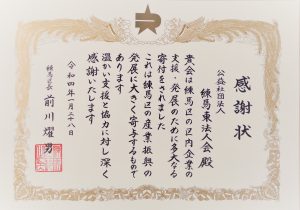 感謝状
公益社団法人
練馬東法人会殿
貴会は練馬区の区内企業の
支援・発展のために多大なる
寄付をされました
これは練馬区の産業振興の
発展に大きく寄与するもので
あります
温かい支援と協力に対し深く
感謝いたします
令和四年一月二十八日
練馬区長 前川燿男